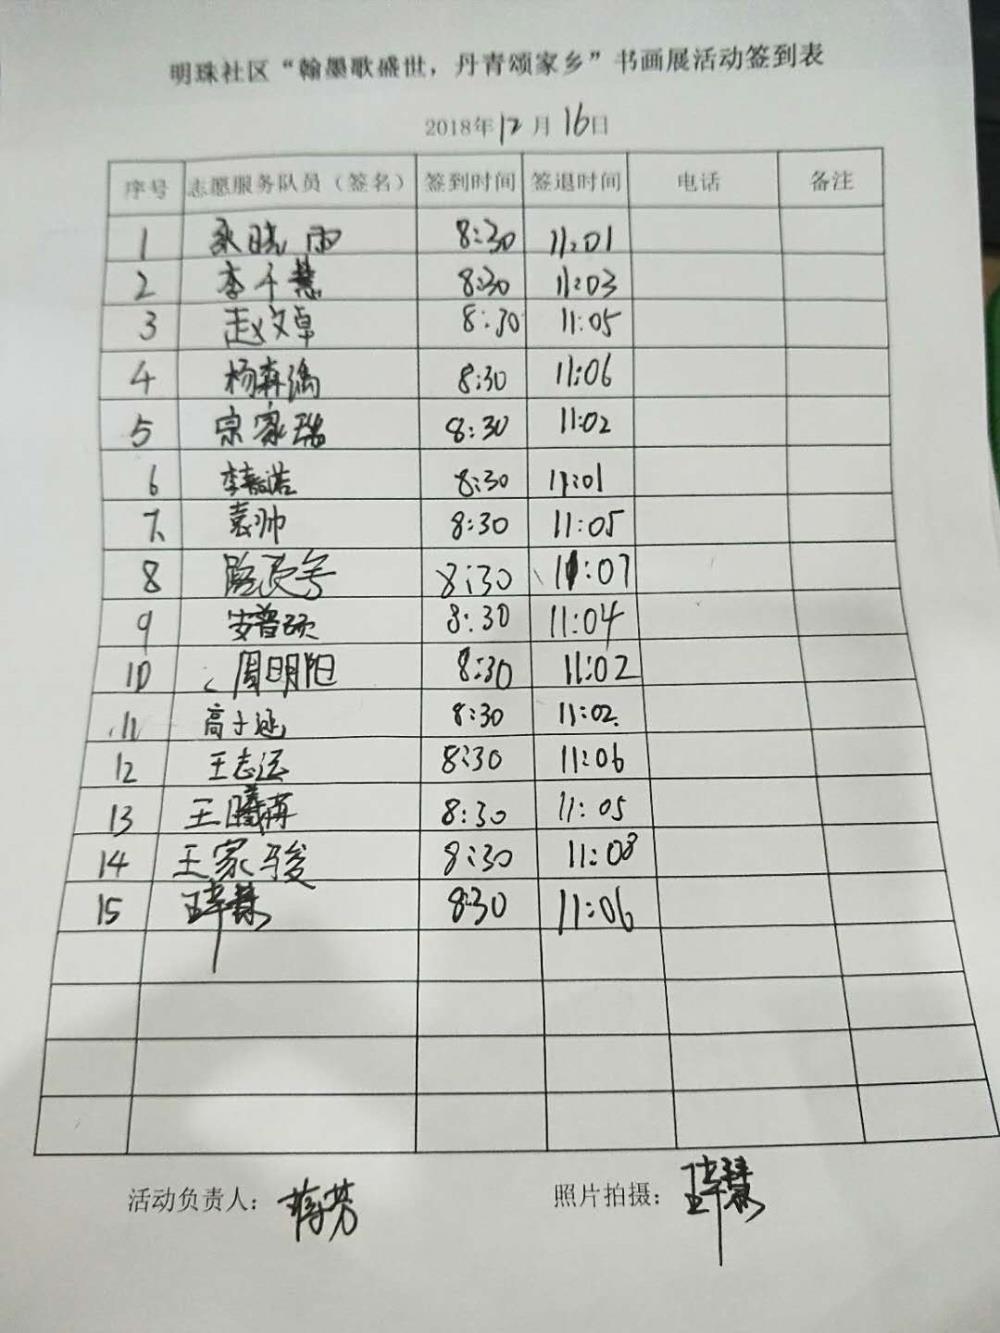 明珠社区“翰墨歌盛世，丹青颂家乡”书画展活动签到表
2018年12月16日
序号 志愿服务队员（签名） 签到时间 签退时间 电话 备注
1 晓雨 8:30 11:01
2 李千慧 8:30 11:03
3 赵文卓 8:30 11:05
4 杨森 8:30 11:06
5 宗家瑞 8:30 11:02
6 李 浩 8:30 11:01
7 袁帅 8:30 11:05
8 8:30 11:07
9 安普硕 8:30 11:04
10 周明阳 8:30 11:02
11 高子涵 8:30 11:02
12 王志运 8:30 11:06
13 王 8:30 11:05
14 王家骏 8:30 11:08
15 8:30 11:06
活动负责人：蒋芳 照片拍摄：